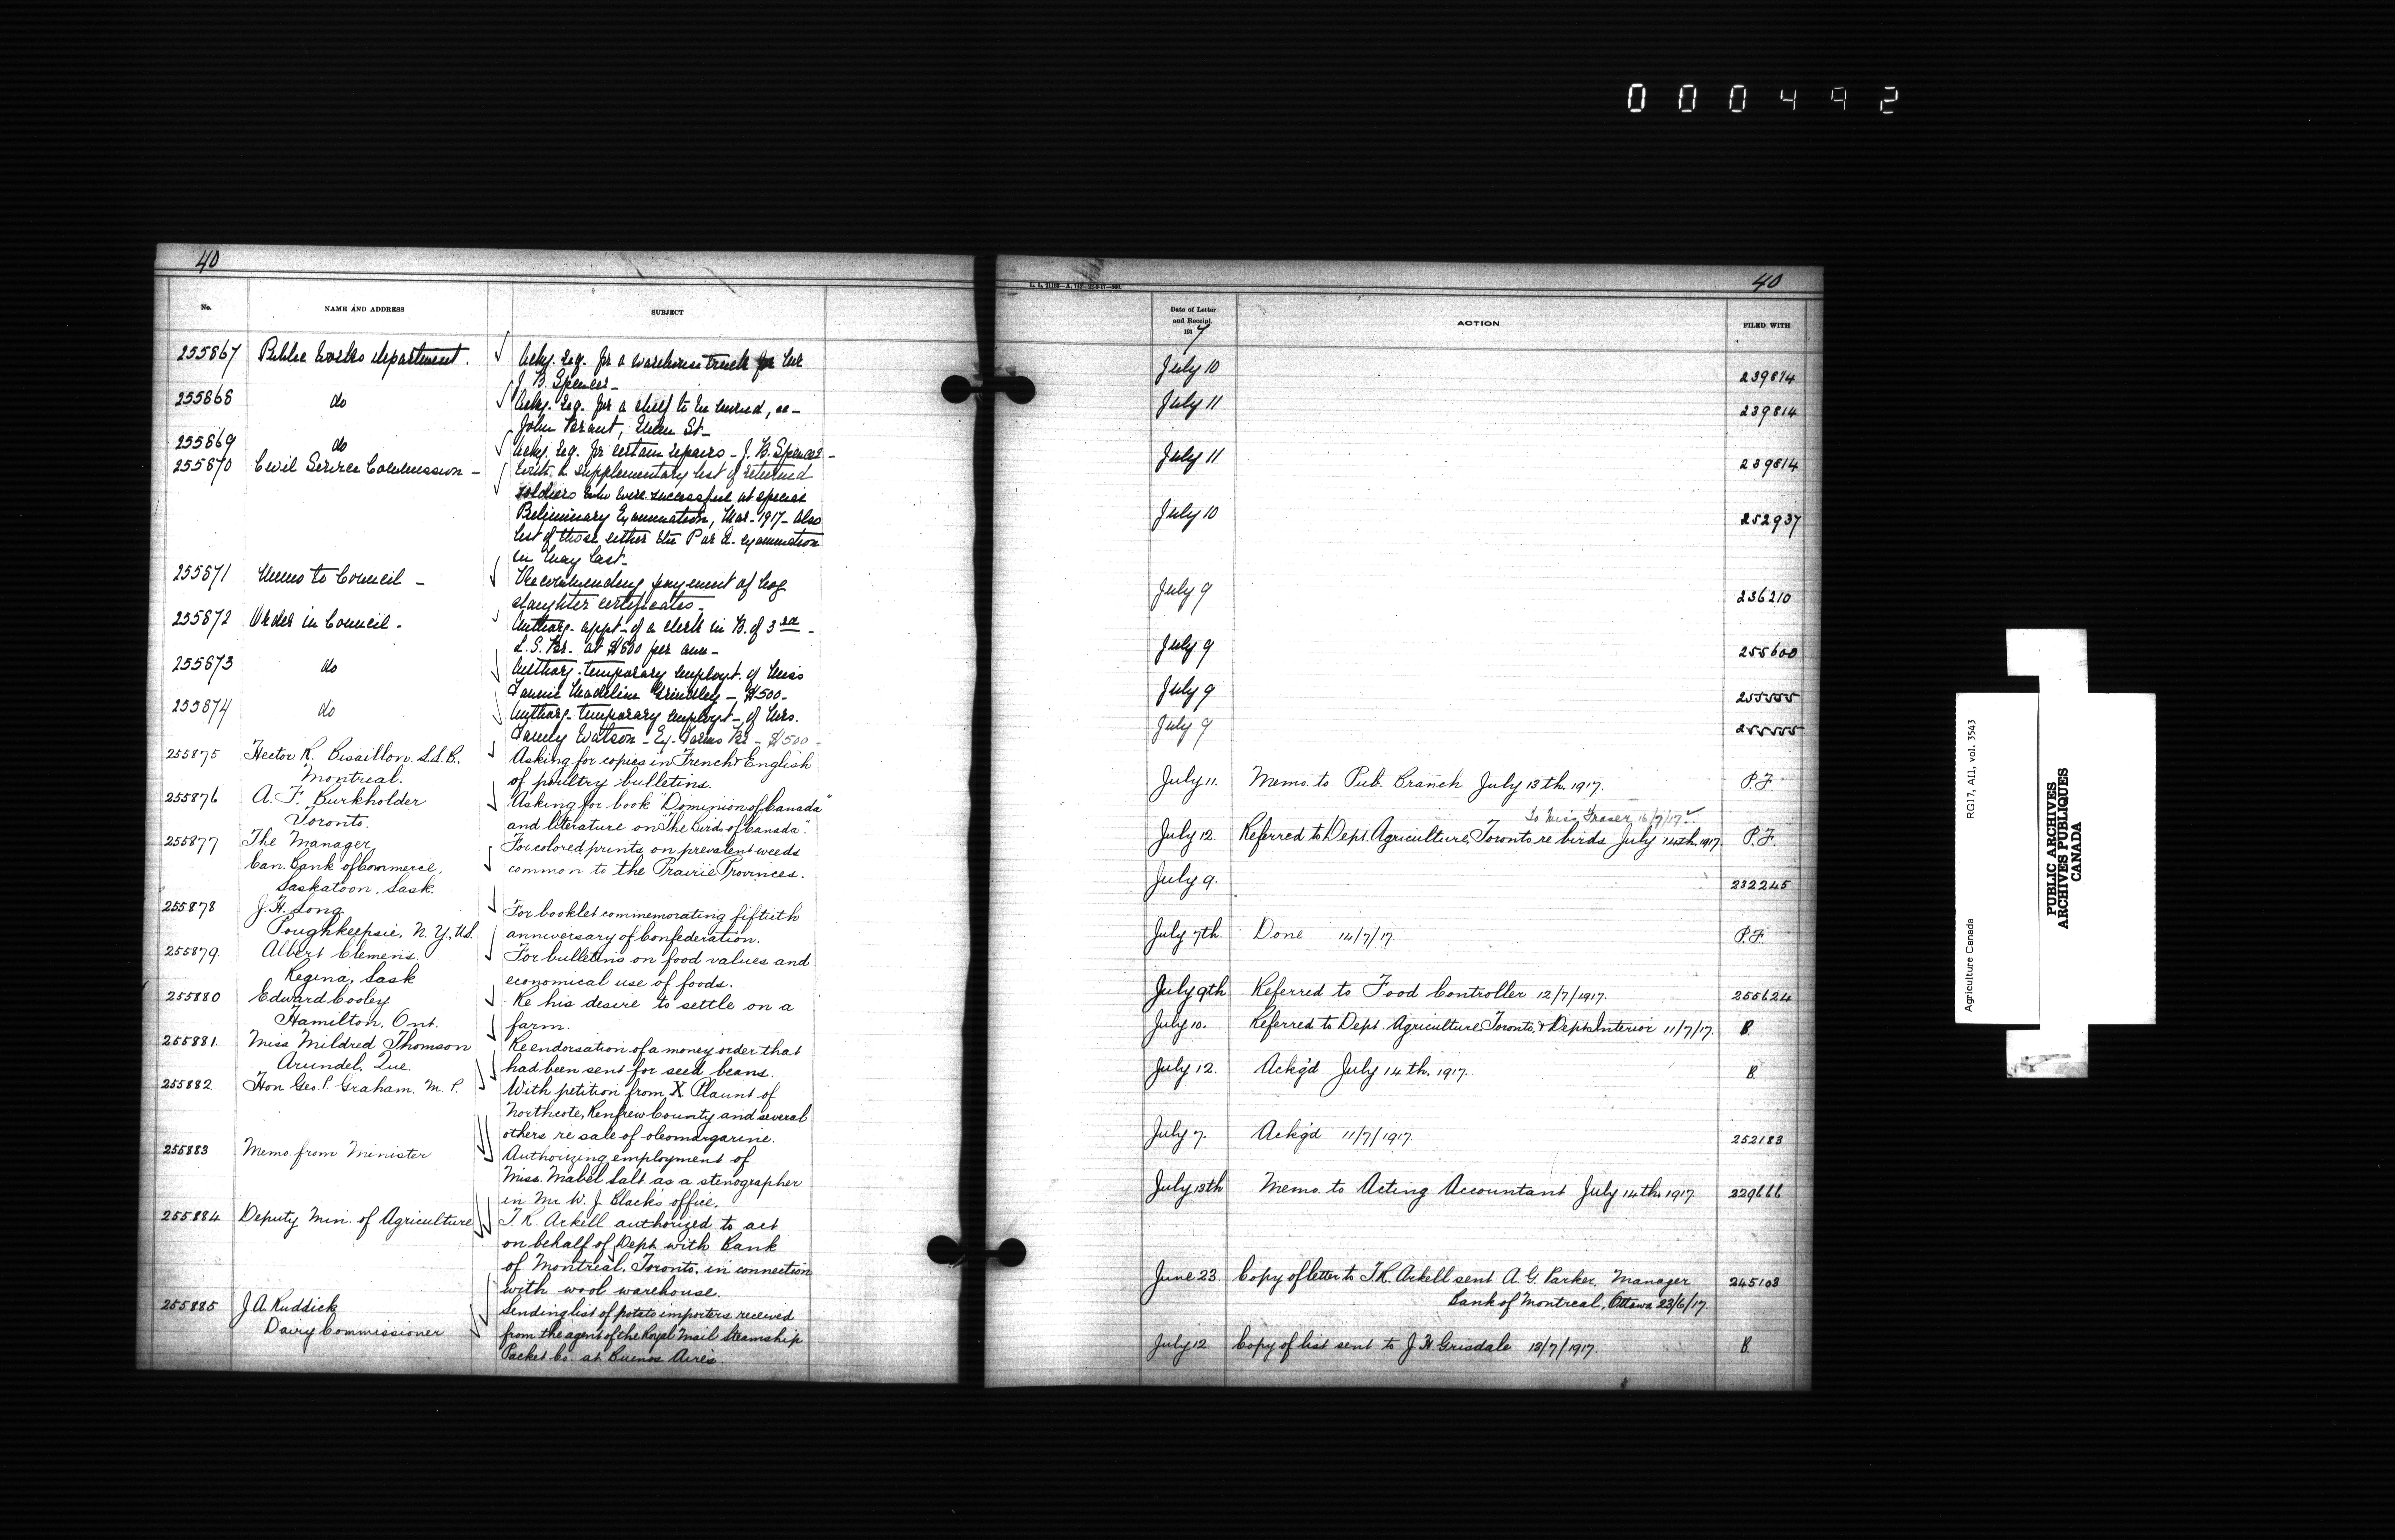 000492
40
No.
NAME AND ADDRESS
SUBJECT
255867 Public Works Department.
Ackg. req. for a warehouse truck for Mr
J. B. Spencer-
255868 do
Ackg. req. for a shelf to be moved, ac-
John Parant, Queen St-
255869 do
Ackg. req. for certain repairs - J. B. Spencer -
255870 Civil Service Commission -
With a supplementary list of returned
soldiers who were successful at special
Preliminary Examination, Mar-1917- Also
list of those either the P or Q. examination
in May last-
255871 Memo to Council -
Recommending payment of hog
slaughter certificates-
255872 Order in Council -
Authorg. appt- of a clerk in B. of 3rd -
L.S. Br. at $1600 per ann-
255873 do
Authorg. temporary employt. of Miss
Fannie Madeline Grindley - $500-
255874 do
Authorg- temporary employt- of Mrs.
Fanny Watson - Ex. Farms Br - $500-
255875 Hector R. Bisaillon. LL.B.,
Montreal.
Asking for copies in French & English
of poultry bulletins.
255876 A. F. Burkholder
Toronto.
Asking for book "Dominion of Canada"
and literature on "The Birds of Canada".
255877 The Manager,
Can. Bank of Commerce,
Saskatoon, Sask.
For colored prints on prevalent weeds
common to the Prairie Provinces.
255878 J. H. Long
Poughkeepsie, N.Y., U.S.
For booklet commemorating fiftieth
anniversary of Confederation.
255879. Albert Clemens
Regina, Sask
For bulletins on food values and
economical use of foods.
255880 Edward Cooley
Hamilton, Ont.
Re his desire to settle on a
farm.
255881. Miss Mildred Thomson
Arundel, Que.
Re endorsation of a money order that
had been sent for seed beans.
255882 Hon Geo. P. Graham. M. P.
With petition from X Plaunt of
Northcote, Renfrew County and several
others re sale of oleomargarine.
255883 Memo. from Minister
Authorizing employment of
Miss. Mabel Salt as a stenographer
in Mr W. J. Black's office.
255884 Deputy Min. of Agriculture
T. R. Arkell authorized to act
on behalf of Dept with Bank
of Montreal, Toronto, in connection
with wool warehouse.
255885 J. A. Ruddick
Dairy Commissioner
Sending list of potato importers received
from the agent of the Royal Mail Steamship
Packet Co. at Buenos Aires.
40
Date of Letter
and Receipt.
1917
ACTION
FILED WITH
July 10 239814
July 11 239814
July 11 239814
July 10 252937
July 9 236210
July 9 255600
July 9 255555
July 9 255555
July 11. Memo. to Pub. Branch July 13th. 1917. P.F.
To Miss Fraser 16/7/17
July 12. Referred to Dept. Agriculture, Toronto re birds July 14th. 1917. P.F.
July 9. 232245
July 7th. Done 14/7/17. P.F.
July 9th Referred to Food Controller 12/7/1917. 255624
July 10. Referred to Dept. Agriculture Toronto, & Dept. Interior 11/7/17. B.
July 12. Ackg'd July 14th. 1917. B.
July 7. Ackg'd 11/7/1917. 252183
July 13th Memo. to Acting Accountant July 14th. 1917 229666
June 23. Copy of letter to T. R. Arkell sent A. G. Parker, Manager 245108
Bank of Montreal, Ottawa 23/6/17.
July 12 Copy of list sent to J. H. Grisdale 13/7/1917. B.
Agriculture Canada RG17, AII, vol. 3543
PUBLIC ARCHIVES
ARCHIVES PUBLIQUES
CANADA